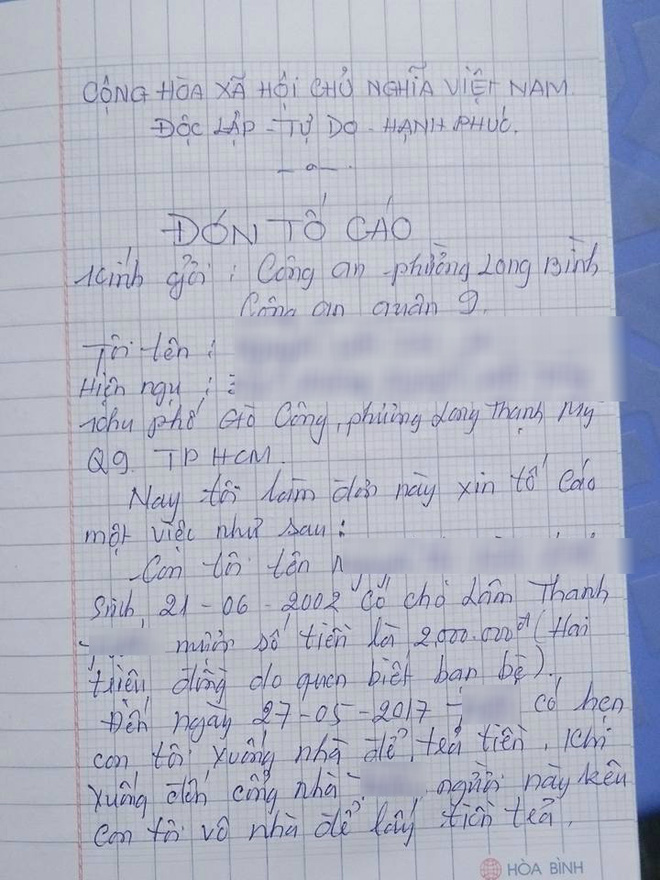 CỘNG HÒA XÃ HỘI CHỦ NGHĨA VIỆT NAM
ĐỘC LẬP - TỰ DO - HẠNH PHÚC.
ĐƠN TỐ CÁO
Kính gởi : Công an phường Long Bình
Công an quận 9.
Tôi tên :
Hiện ngụ :
Khu phố Gò Công, phường Long Thạnh Mỹ
Q9. TP HCM.
Nay tôi làm đơn này xin tố cáo
một việc như sau :
Con tôi tên N
Sinh, 21-06-2002 có cho Lâm Thanh
mượn số tiền là 2.000.000đ (Hai
triệu đồng do quen biết bạn bè).
Đến ngày 27-05-2017 có hẹn
con tôi xuống nhà để trả tiền. Khi
xuống đến cổng nhà người này kêu
con tôi vô nhà để lấy tiền trả.
HÒA BÌNH